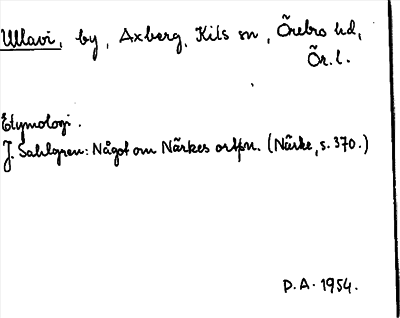 Ullavi, by, Axberg, Kils sn, Örebro hd,
Ör. l.
Etymologi.
J. Sahlgren: Något om Närkes ortn. (Närke, s. 370.)
D. A. 1954.